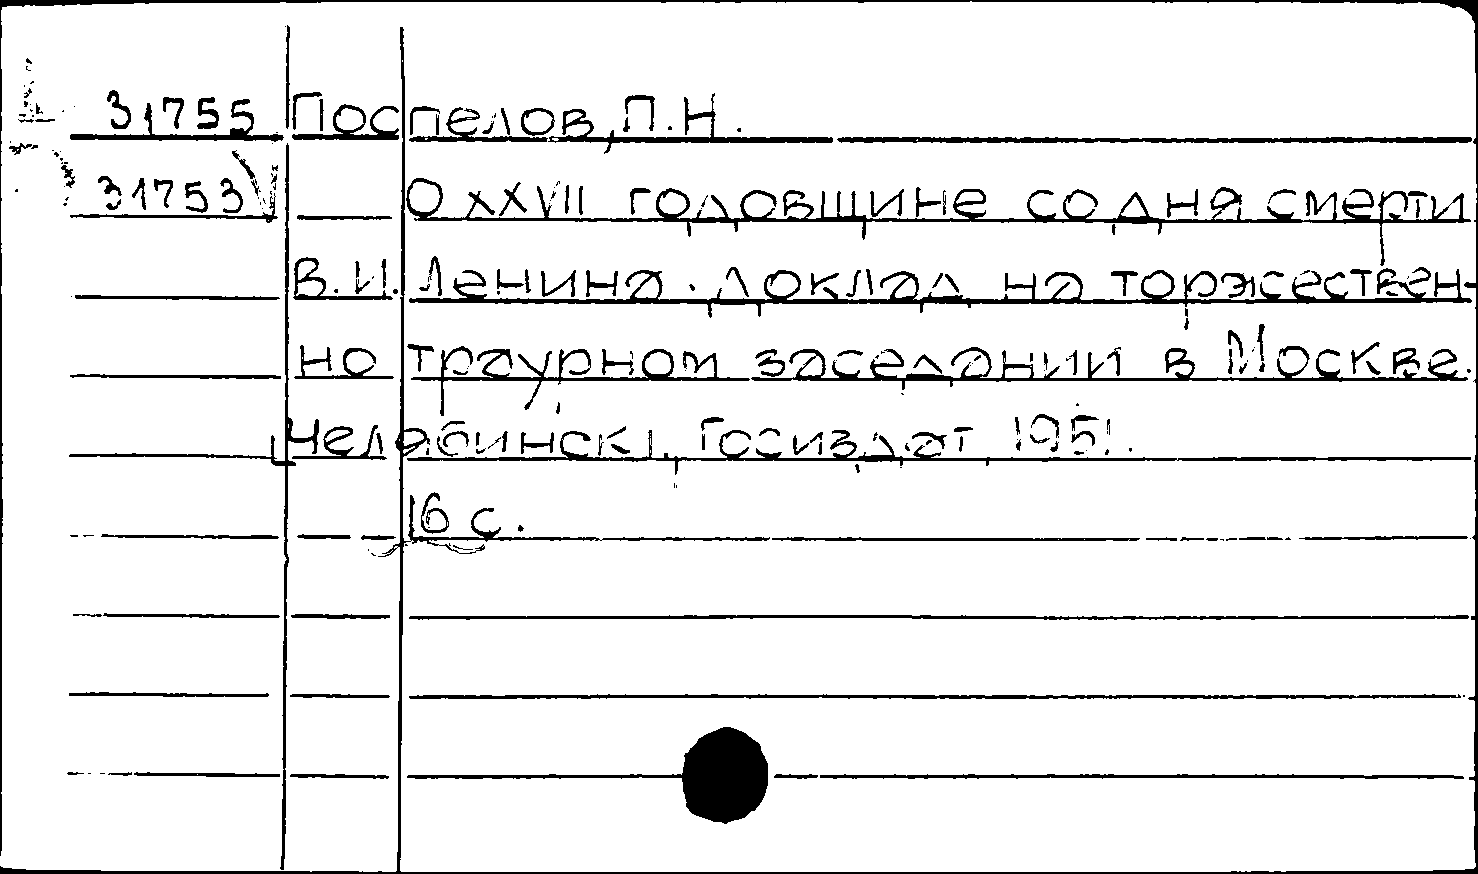 31755 Поспелов, П.Н.
31753 О XXVII годовщине со дня смерти
В.И. Ленина. Доклад на торжествен-
но траурном заседании в Москве.
Челябинск, Госиздат, 1951.
16 с.